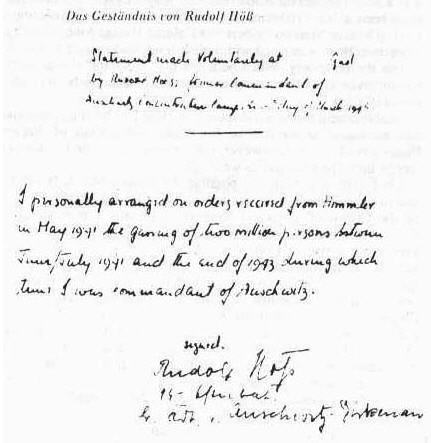 Das Geständnis von Rudolf Höß
Statement made voluntarily at gaol
by Rudolf Hoess, former Commandant of
Auschwitz Concentration Camp on day of March 1946
I personally arranged on orders received from Himmler
in May 1941 the gassing of two million persons between
June/July 1941 and the end of 1943 during which
time I was commandant of Auschwitz.
signed.
Rudolf Höss